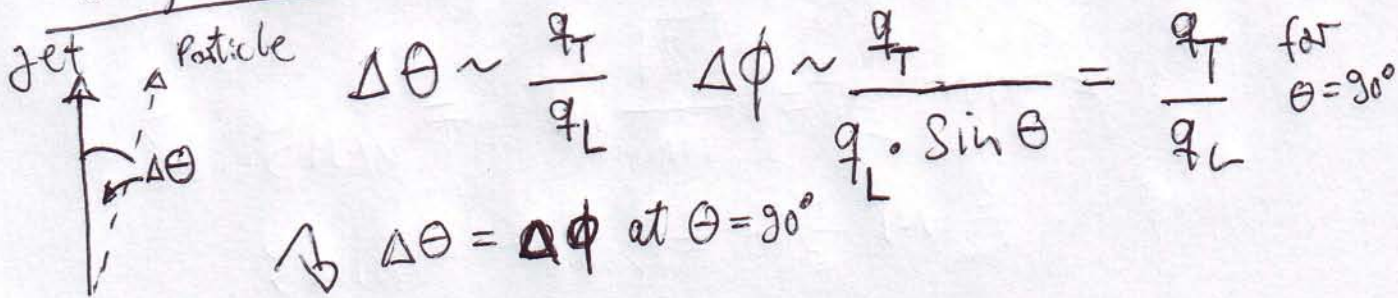 Jet Particle Δθ ~ q_T / q_L Δϕ ~ q_T / (q_L · Sin θ) = q_T / q_L for θ=90°
Δθ
Δθ = Δϕ at θ=90°